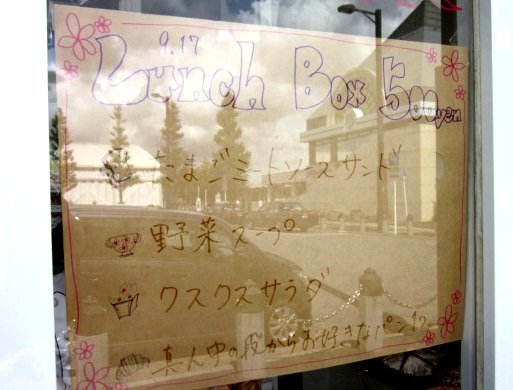 9.17
Lunch Box 500yen
たまごミートソースサンド
野菜スープ
クスクスサラダ
真ん中の段からお好きなパン1ヶ